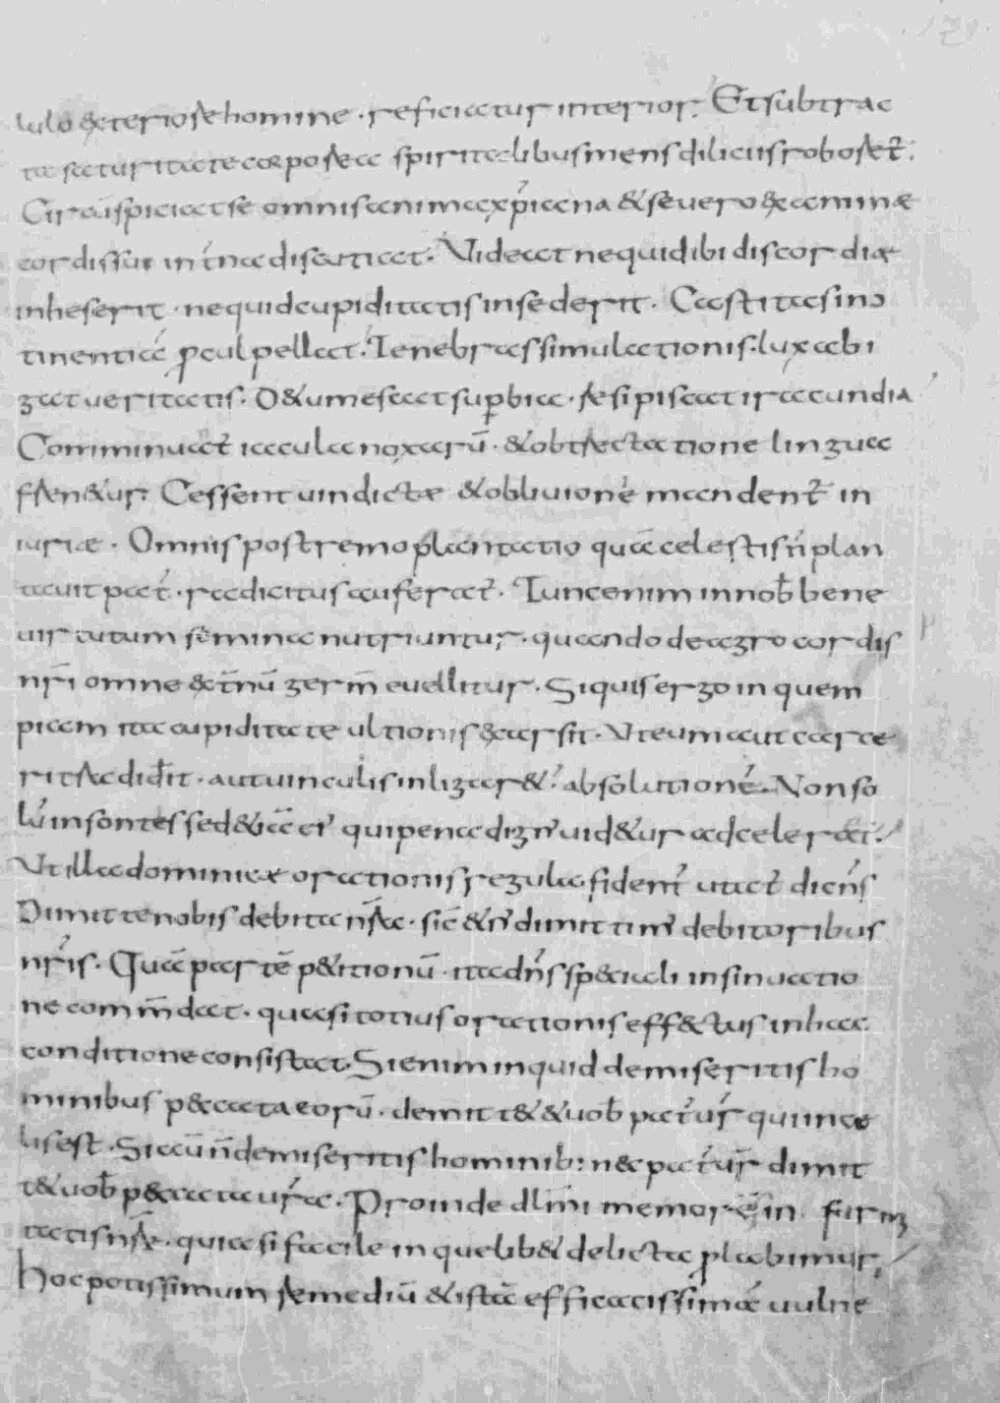 lulo & teriore homine · reficiatur interior. Et subtrac
ta saturitate corporea spiritalibus mens diliciis roboret᷑.
Circūspiciat se omnis anima xp̄iana & severo examinæ
cordis sui intīa discutiat. Videat nequid ibi discordiæ
inheserit · nequid cupiditatis insederit. Castitas incō
tinentiā ꝓcul pellat. Tenebras simulationis · lux abi
gat veritatis. D&umescat sup̱bia · resipiscat iracundia
Comminuat᷑ iacula noxarū · & obtrectatione linguae
fren&ur. Cessent vindictæ & oblivionē mandent᷑ in
iuriæ. Omnis postremo plantatio quā celestis n̄ plan
tavit pat̄ · radicitus auferat᷑. Tunc enim in nob̄ bene
virtutum semina nutriuntur · quando de agro cordis
nr̄i omne &t̄nū germ̄ evellitur. Siquis ergo in quem
piam ita cupiditate ultionis exarsit. Ut eum aut carce
rit radider̄it · aut vinculis inligar&. absolutionē. Non so
lū insontes sed &iā ei' qui pena dign' vid&ur adceleret.
Ut illa dominicæ orationis regula · fident᷑ utat᷑ dicen̄s
Dimitte nobis debita nr̄a · sic̄ & n' dimittim' debitoribus
nr̄is. Quā partē p&itionū · ita dn̄s sp&iali insinuatio
ne com̄mdat · quasi totius orationis eff&us in hac
conditione consistat. Si enim inquid demiseritis ho
minibus peccata eorū · demitt& & vob̄ pat̄ vr̄ qui in ce
lis est. Si aūn̄ demiseritis hominib: nec pat̄ vr̄ dimit
t& vob̄ peccata vr̄a. Proinde dl̄mi memores in firmi
tatis nr̄e · quia si facile in quelib& delicta plabimur,
hoc potissimum remediū & istā efficacissimā vulne